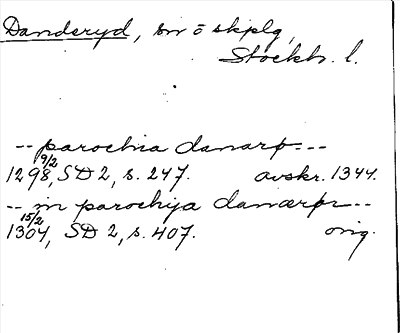 Danderyd, sn o skplg,
Stockh. l.
-- parochia danarþ ---
1298 9/2, SD 2, s. 247. avskr. 1344.
-- in parochija danærþr --
1304 15/2, SD 2, s. 407. orig.